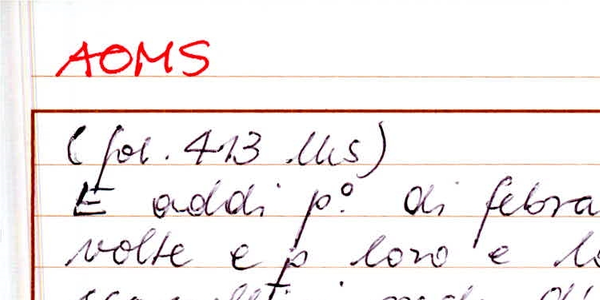 AOMS
(fol. 413 Ms)
E addi pº. di febra
volte e p loro e lo